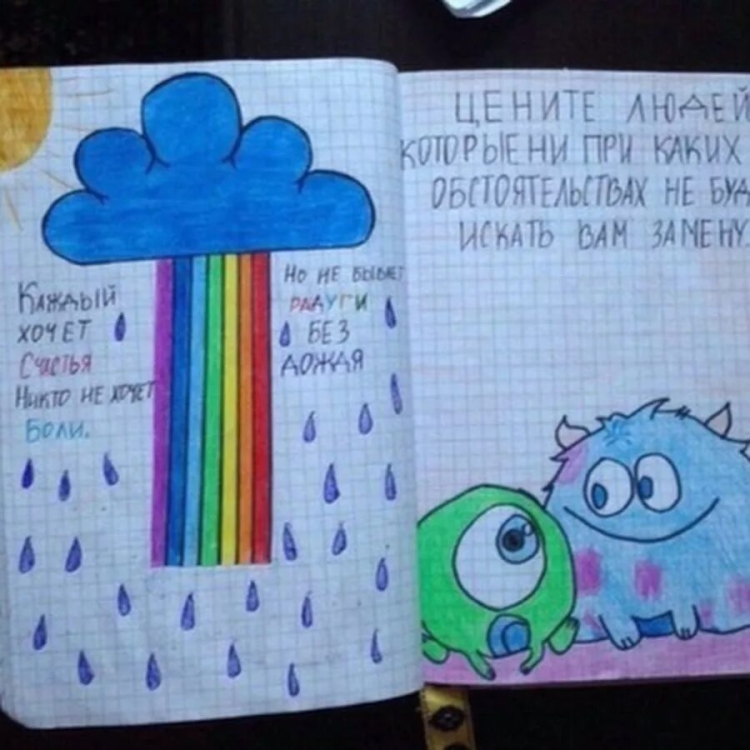 Каждый
хочет
Счастья
Никто не хочет
Боли.
Но не бывает
радуги
БЕЗ
ДОЖДЯ
ЦЕНИТЕ ЛЮДЕЙ
КОТОРЫЕ НИ ПРИ КАКИХ
ОБСТОЯТЕЛЬСТВАХ НЕ БУД
ИСКАТЬ ВАМ ЗАМЕНУ